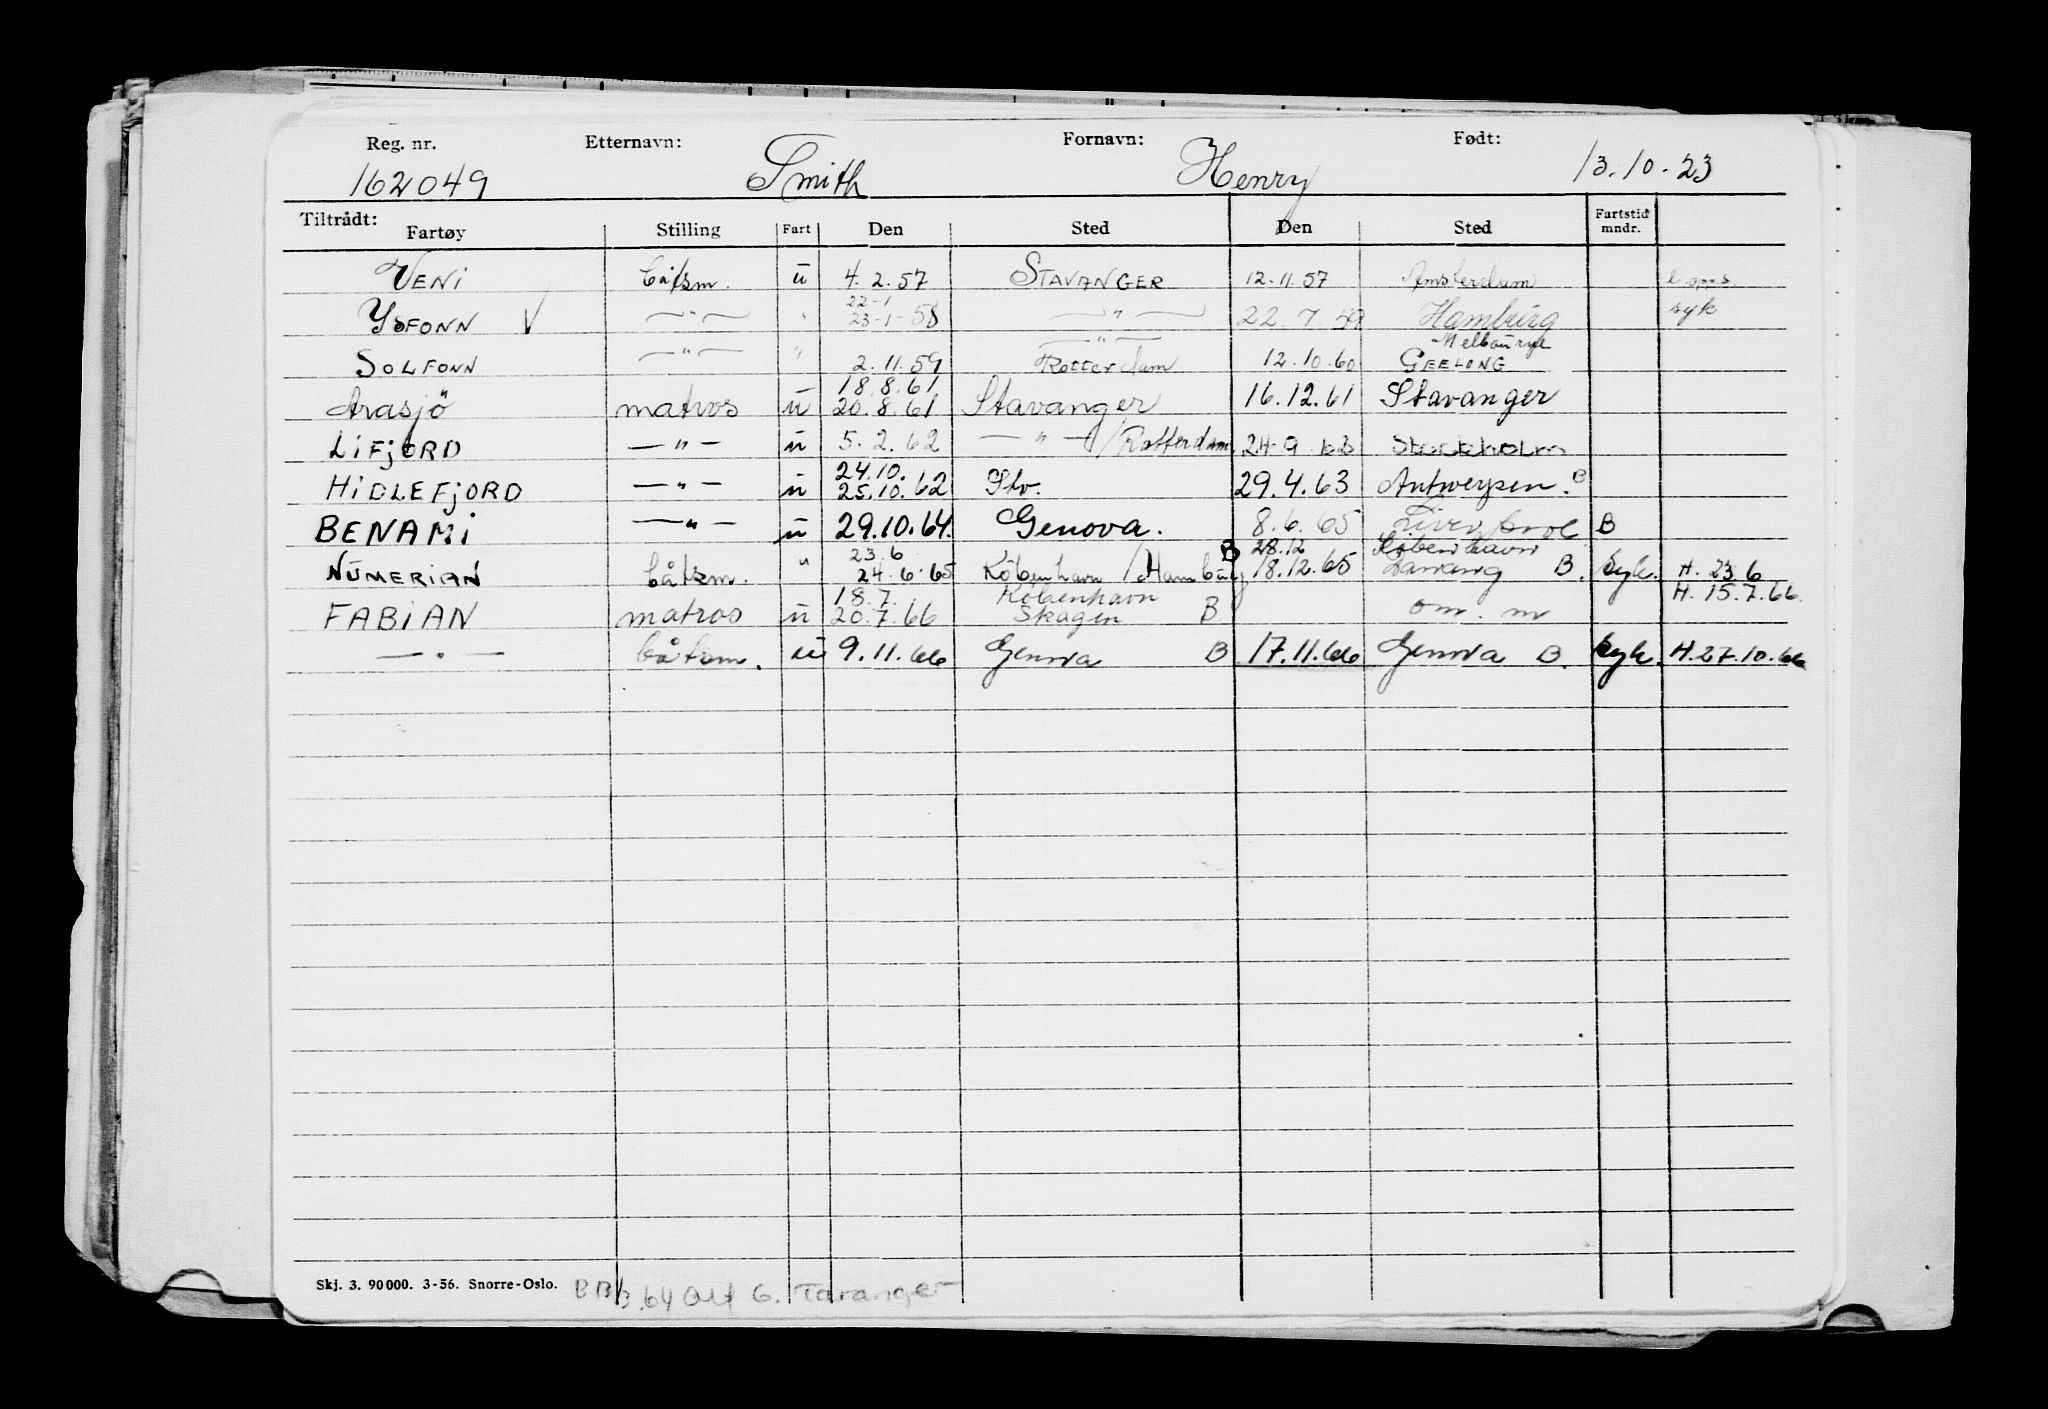 Reg. nr. Etternavn: Fornavn: Født:
162049 Smith Henry 13.10.23
Tiltrådt:
Fartøy Stilling Fart Den Sted Den Sted Fartstid mndr.
VENI båtsm. u 4.2.57 STAVANGER 12.11.57 Amsterdam
22-1
YSFONN V —"— " 23-1-58 —"— 22.7.59 Hamburg syk
—"— Melbourne
SOLFONN —"— " 2.11.59 Rotterdam 12.10.60 GEELONG
18.8.61
Arasjö matros u 20.8.61 Stavanger 16.12.61 Stavanger
LiFjORD —"— u 5.2.62 —"—/Rotterdam 24-9 Stockholm
24.10.
HiDLEFjORD —"— u 25.10.62 Stv. 29.4.63 Antwerpen. B
BENAMi —"— u 29.10.64. Genova. 8.6.65 Liverpool B
23.6 B 28.12 København
NUMERiAN båtsm. " 24.6.65 København/Hamburg 18.12.65 B. syk. H. 23.6
18.7. København H. 15.7.66.
FABiAN matros u 20.7.66 Skagen B om. m
—"— båtsm. u 9.11.66 Genova B 17.11.66 Genova B. syk. H.27.10.66
Skj. 3. 90000. 3-56. Snorre-Oslo. G. Taranger